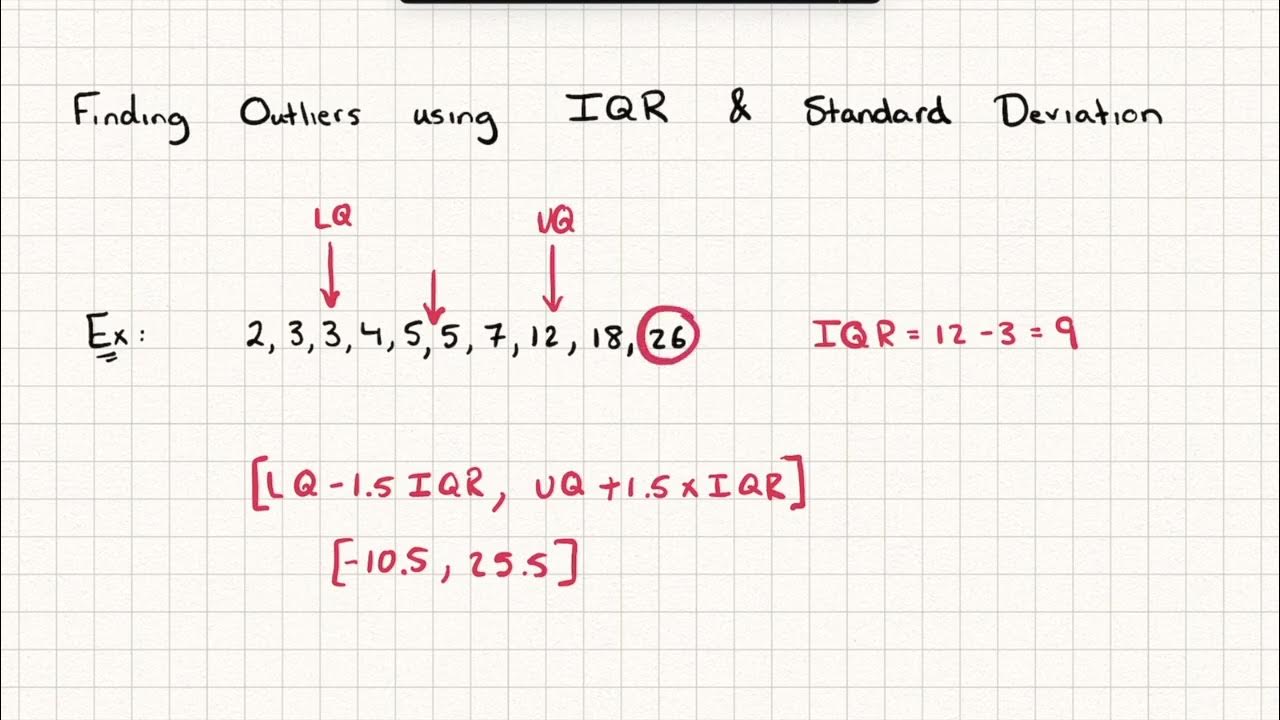 Finding Outliers using IQR & Standard Deviation
LQ UQ
Ex: 2, 3, 3, 4, 5, 5, 7, 12, 18, 26 IQR = 12 - 3 = 9
[LQ - 1.5 IQR, UQ + 1.5 × IQR]
[-10.5, 25.5]